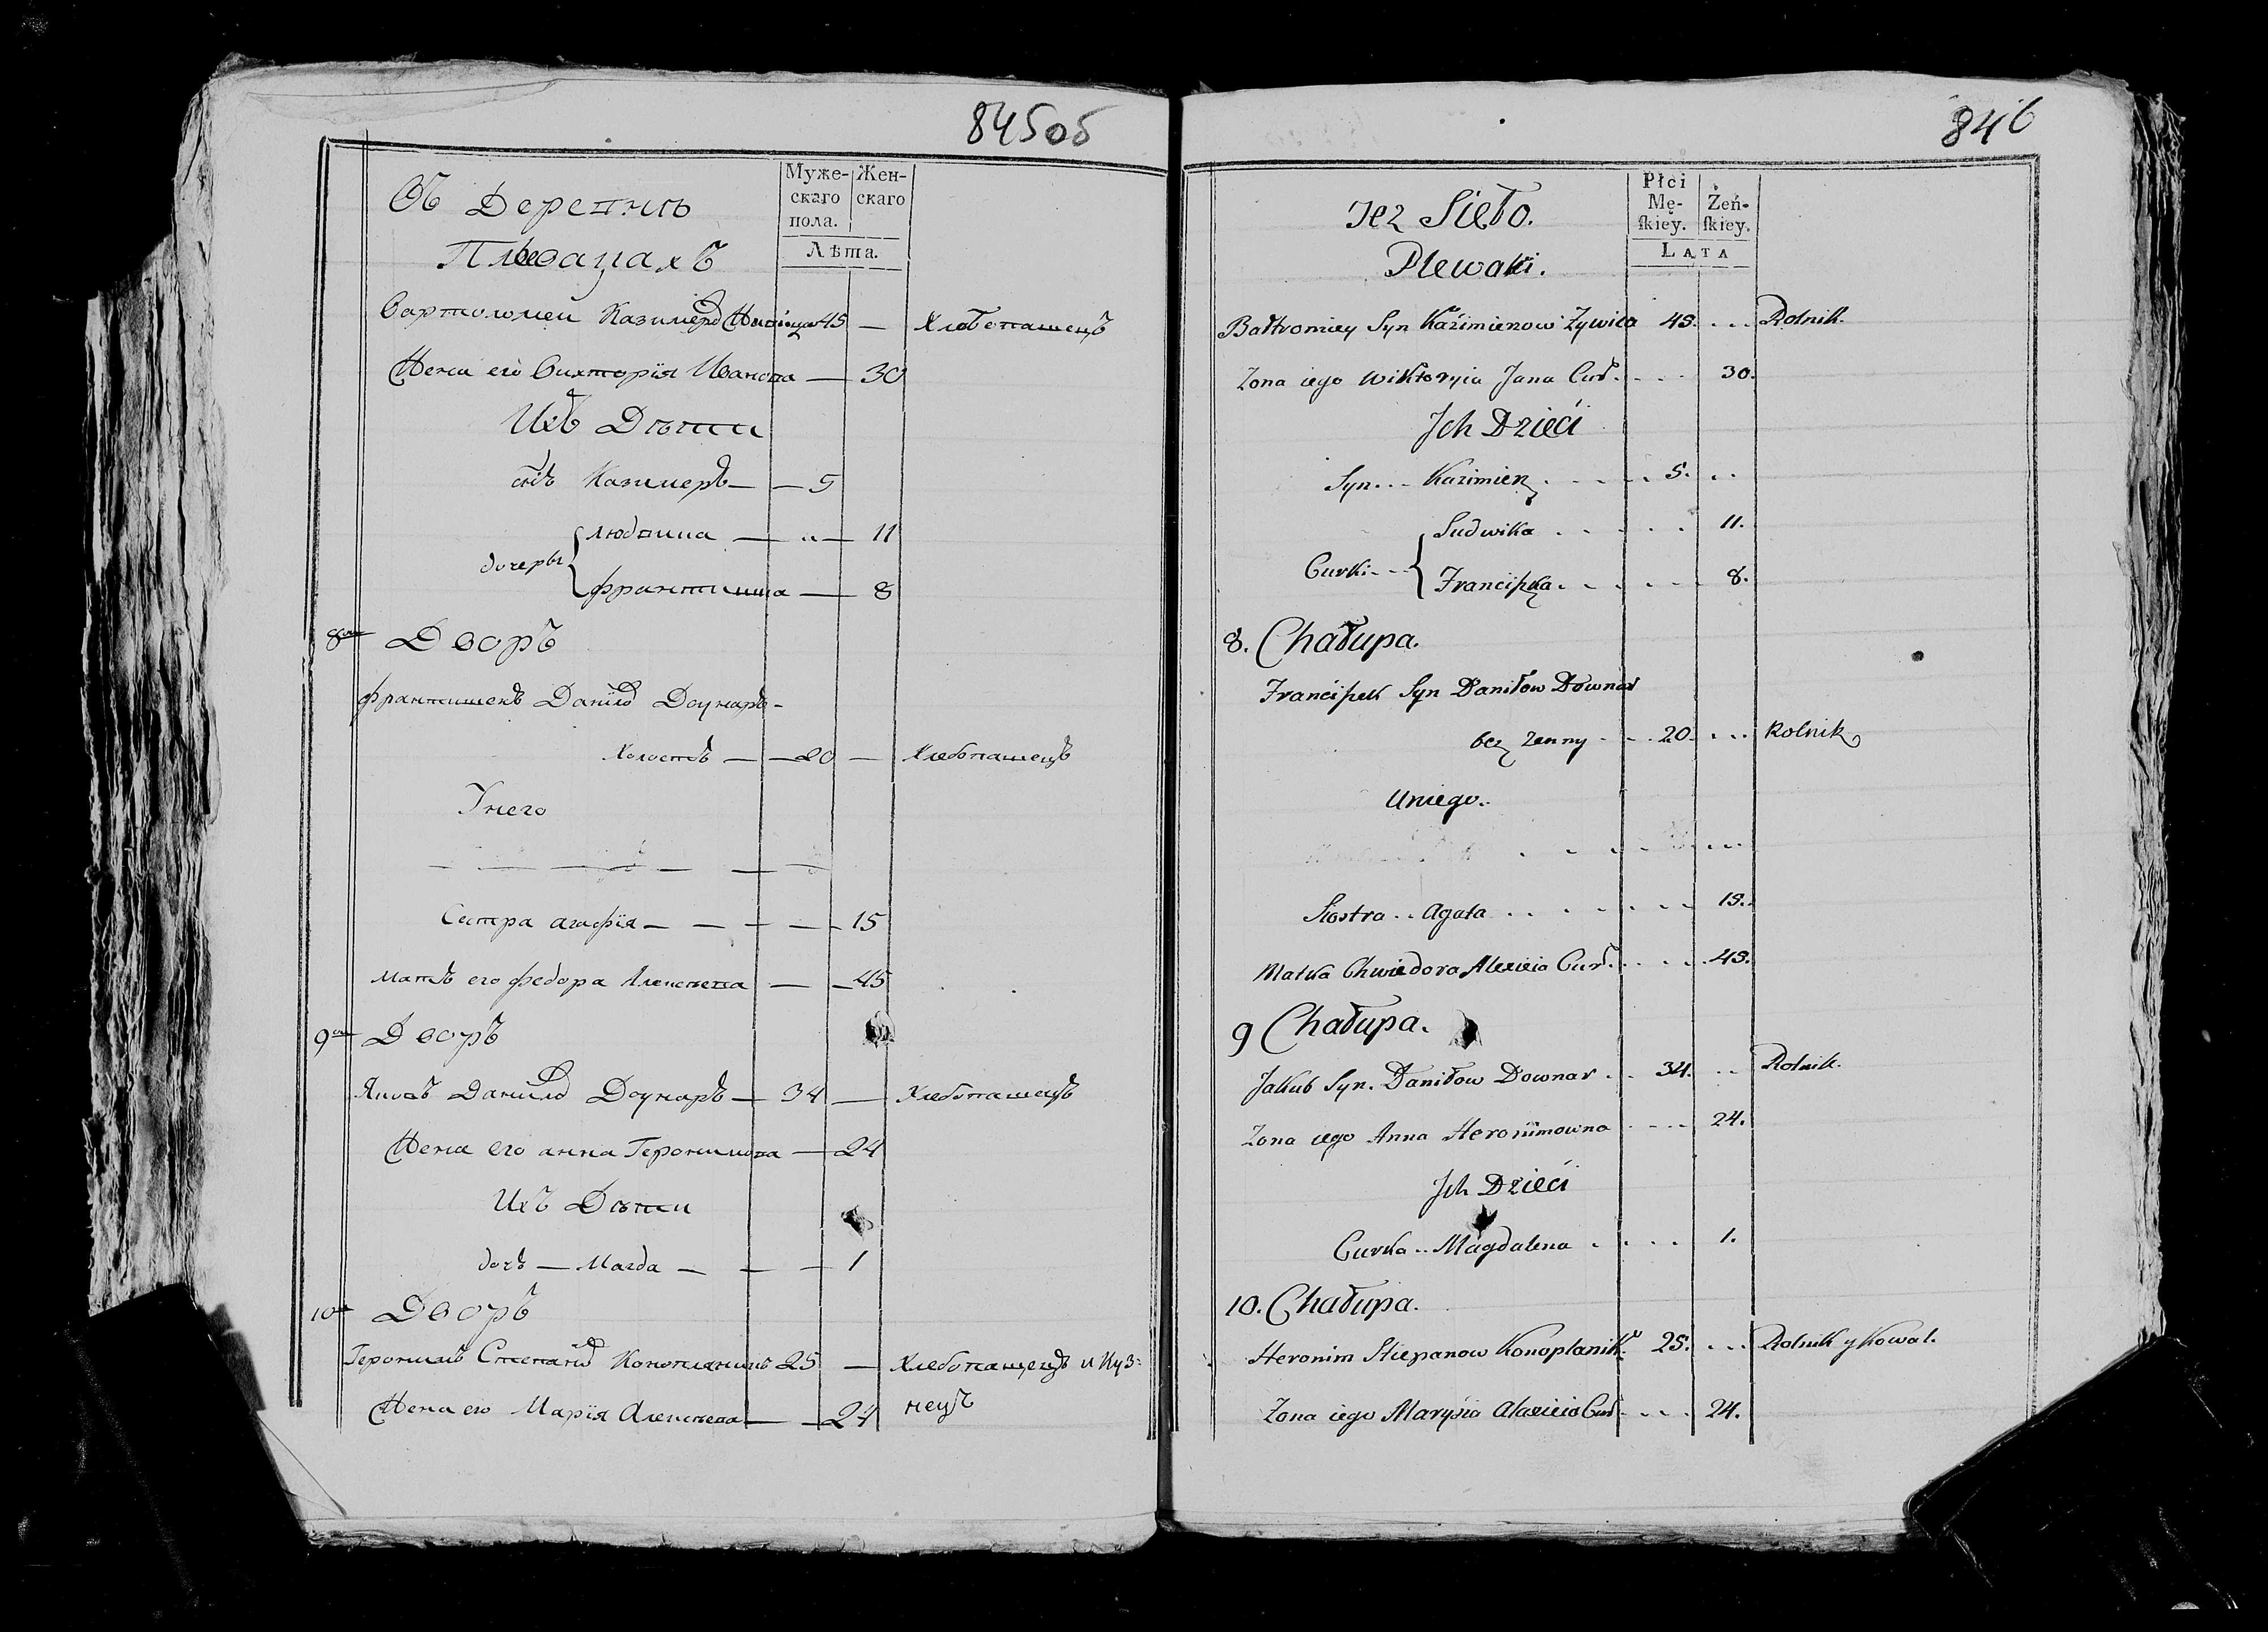 845об
Муже-
скаго
пола.
Жен-
скаго
Лѣта.
Въ Деревнѣ
Плевацахъ
Вартоломей Казимеровъ Живица 45 — Хлебопашецъ
Жена его Виктория Иванова — 30
Ихъ Дѣти
сынъ Казимеръ — 5
дочеры { Людвика — 11
Франтишка — 8
8ой Дворъ
Франтишекъ Данилов Доунаръ -
Холостъ — 20 — Хлебопашецъ
У него
Сестра агафія — 15
Мать его федора Алексѣева — 45
9ой Дворъ
Яковъ Данилов Доунаръ — 34 — Хлебопашецъ
Жена его анна Геронимова — 24
Ихъ Дѣти
дочь — Магда — 1
10й Дворъ
Геронимъ Степанов Коноплянникъ 25 — Хлебопашецъ и Куз=
нецъ
Жена его Марія Алексѣева — 24
846
Płci
Mę-
ſkiey.
Żeń-
ſkiey.
LATA
Jez Sieło.
Plewaki.
Bałtromiey Syn Kaźimierzow Zywica 45. ... Rolnik.
Zona iego Wiktoryia Jana Cur. ... 30.
Jch Dzieći
Syn... Kazimierz ... 5. ..
Curki... { Ludwika ... 11.
Franciſzka ... 8.
8. Chałupa.
Franćiſzek Syn Daniłow Downar
bez zenny .. 20. ... Rolnik
Uniego..
Siostra .. Agata ... 15.
Matka Chwiedora Alexieia Cur. ... 45.
9 Chałupa.
Jakub Syn. Daniłow Downar .. 34. .. Rolnik.
Zona iego Anna Heronimowna ... 24.
Jch Dzieći
Curka .. Magdalena ... 1.
10. Chałupa.
Heronim Stiepanow Konoplanik. 25. ... Rolnik y Kowal.
Zona iego Marysia Alaxieia Cur. ... 24.